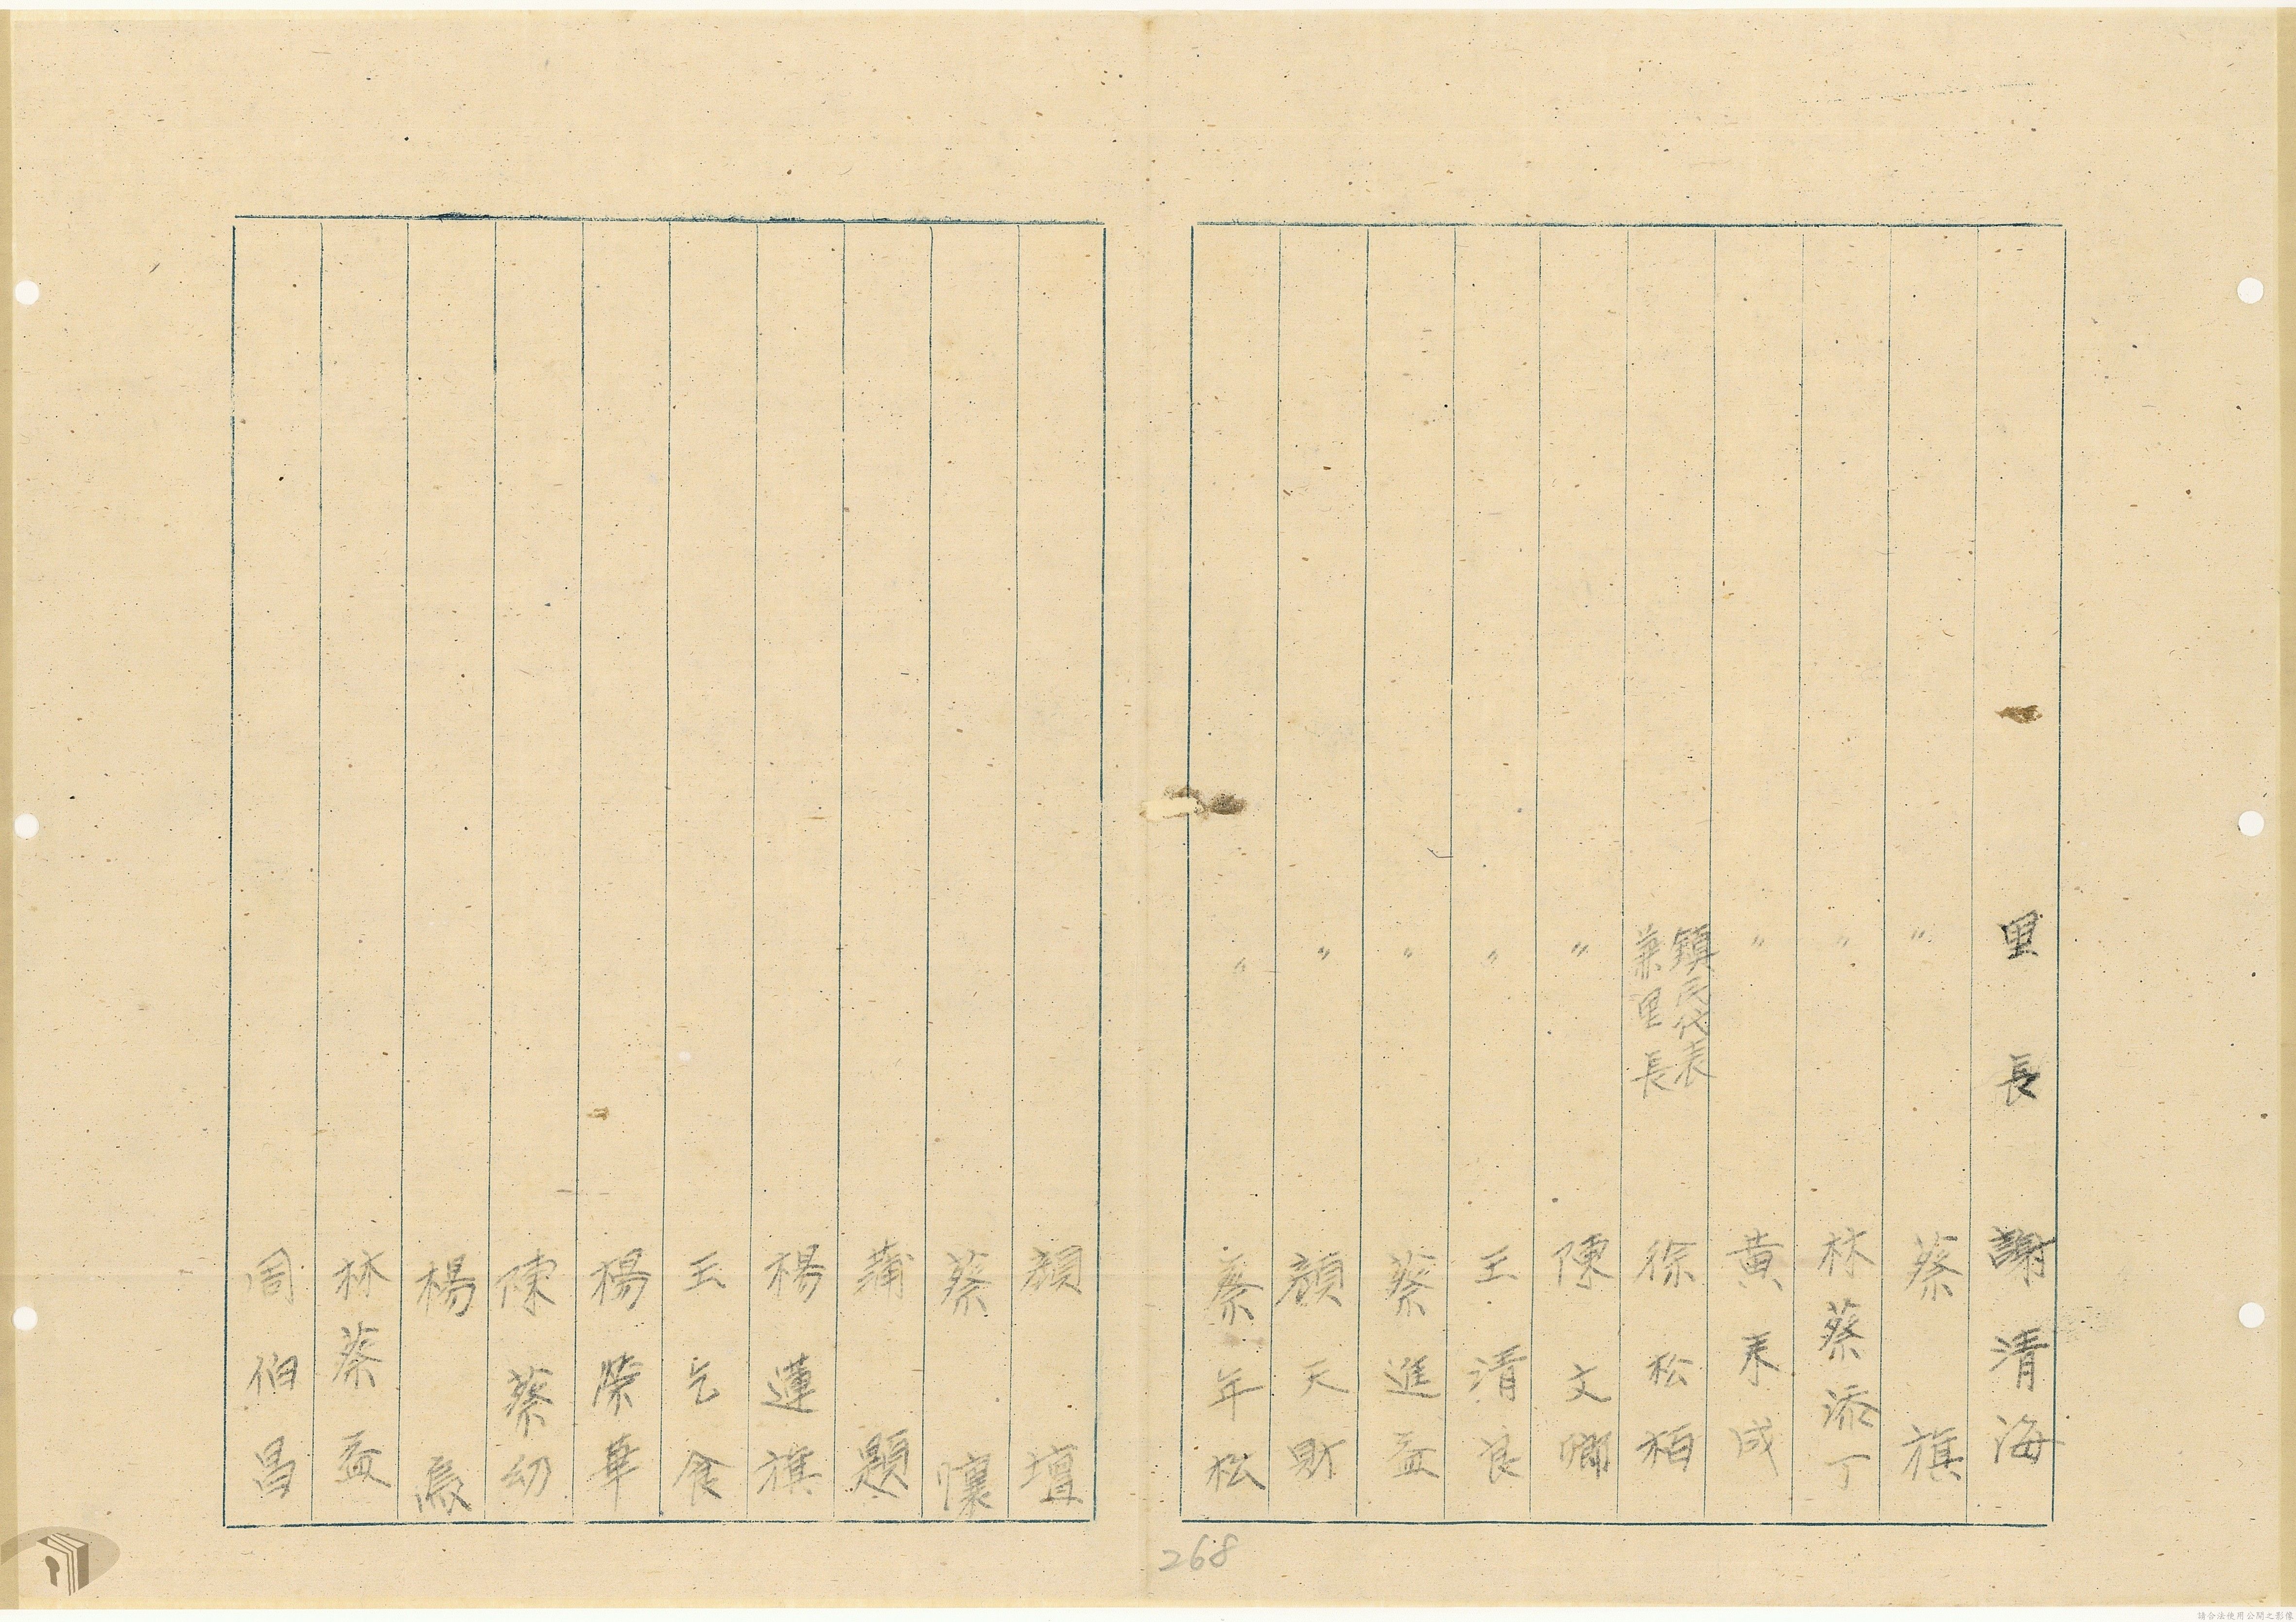 里長 謝清海
〃 蔡旗
〃 林蔡添丁
〃 黃耒成
鎮民代表
兼里長 徐松柏
〃 陳文卿
〃 王清良
〃 蔡進益
〃 顏天財
〃 蔡年松
顏壇
蔡懷
蒲題
楊蓮旗
王乞食
楊榮華
陳蔡幼
楊
林蔡益
周伯昌
268
請合法使用公開之影像